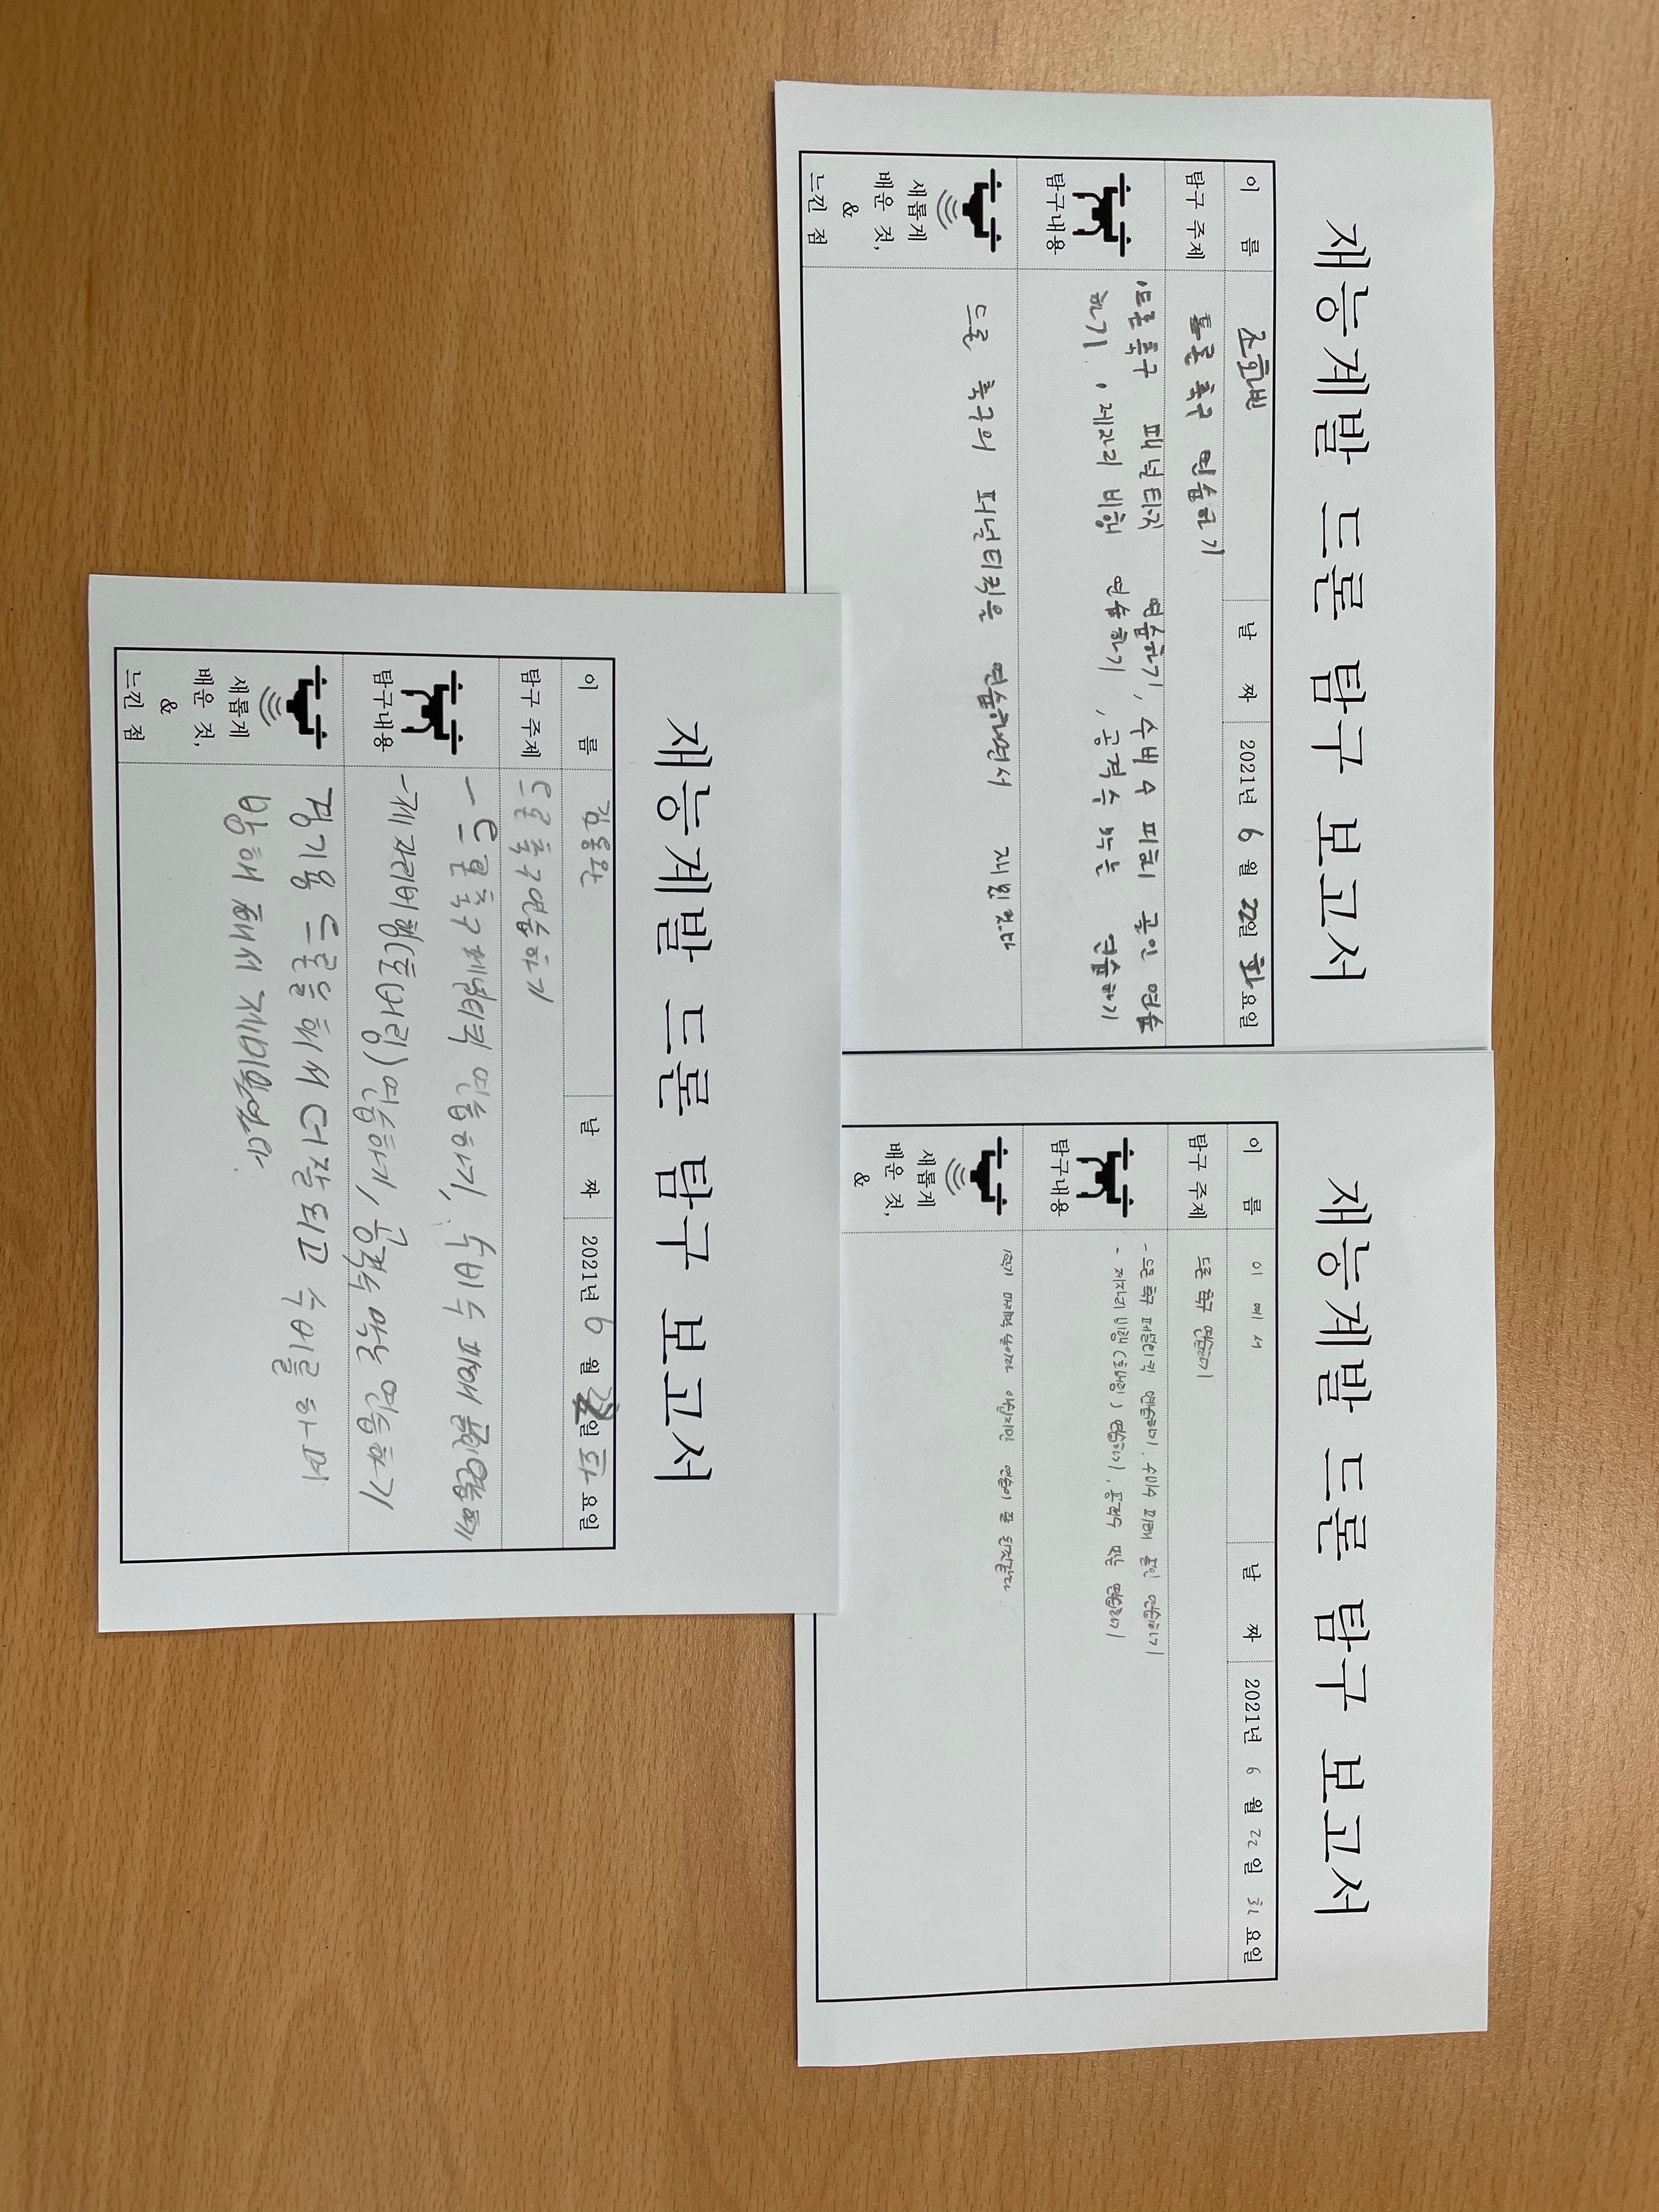 재능계발 드론 탐구 보고서
이 름 조한빈 날 짜 2021년 6 월 22일 화요일
탐구 주제 드론 축구 연습하기
탐구내용
드론축구 패널티킥 연습하기, 수비수 피해 골인 연습
하기, 제자리 비행 연습하기, 공격수 막는 연습하기
새롭게
배운 것,
&
느낀 점
드론 축구의 퍼널티킥을 연습하면서 재밌었다
재능계발 드론 탐구 보고서
이 름 이 예 서 날 짜 2021년 6 월 22 일 화 요일
탐구 주제 드론 축구 연습하기
탐구내용
-드론 축구 패널티킥 연습하기, 수비수 피해 골인 연습하기
- 제자리 비행 (호버링) 연습하기, 공격수 막는 연습하기
새롭게
배운 것,
&
연습이 잘
재능계발 드론 탐구 보고서
이 름 날 짜 2021년 6 월 일 화 요일
탐구 주제 드론축구연습하기
탐구내용
-드론축구 페널티킥 연습하기, 수비수 피해 골인연습하기
-제자리비행(호버링)연습하기, 공격수 막는 연습하기
새롭게
배운 것,
&
느낀 점
경기용 드론을 해서 더 잘되고 수비를 하며
방해 해서 재미있었다.